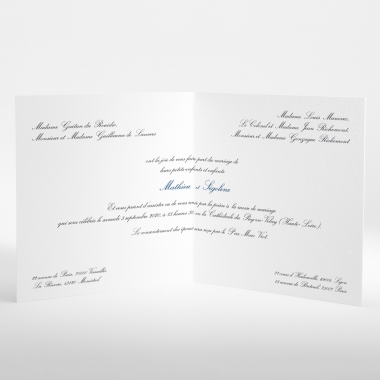 Madame Gaëtan du Rouédic,
Monsieur et Madame Guillaume de Lauwers
Madame Louis Mauroux,
Le Colonel et Madame Jean Richemont,
Monsieur et Madame Gonzague Richemont
ont la joie de vous faire part du mariage de
leurs petits-enfants et enfants
Mathieu et Ségolène
Et vous prient d'assister ou de vous unir par la prière à la messe de mariage
qui sera célébrée le samedi 5 septembre 2020, à 15 heures 30 en la Cathédrale du Puy-en-Velay (Haute-Loire).
Le consentement des époux sera reçu par le Père Marc Viot.
avenue de Paris, 78000 Versailles
La Rivoire, Montréal
rue d'Heidonville, 69002 Lyon
avenue de Breteuil, Paris